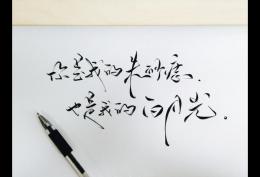 你是我的朱砂痣.
也是我的白月光。